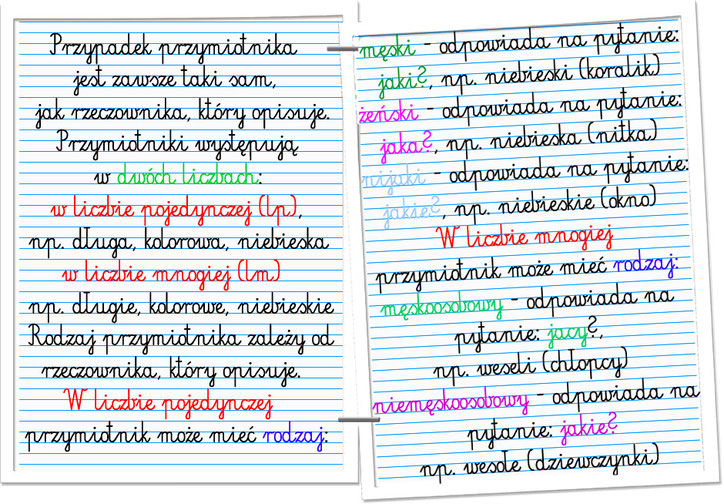 Przypadek przymiotnika
jest zawsze taki sam,
jak rzeczownika, który opisuje.
Przymiotniki występują
w dwóch liczbach:
w liczbie pojedynczej (lp.),
np. długa, kolorowa, niebieska
w liczbie mnogiej (lm)
np. długie, kolorowe, niebieskie
Rodzaj przymiotnika zależy od
rzeczownika, który opisuje.
W liczbie pojedynczej
przymiotnik może mieć rodzaj:
męski - odpowiada na pytanie:
jaki?, np. niebieski (koralik)
żeński - odpowiada na pytanie:
jaka?, np. niebieska (nitka)
nijaki - odpowiada na pytanie:
jakie?, np. niebieskie (okno)
W liczbie mnogiej
przymiotnik może mieć rodzaj:
męskoosobowy - odpowiada na
pytanie: jacy?,
np. weseli (chłopcy)
niemęskoosobowy - odpowiada na
pytanie: jakie?
np. wesołe (dziewczynki)